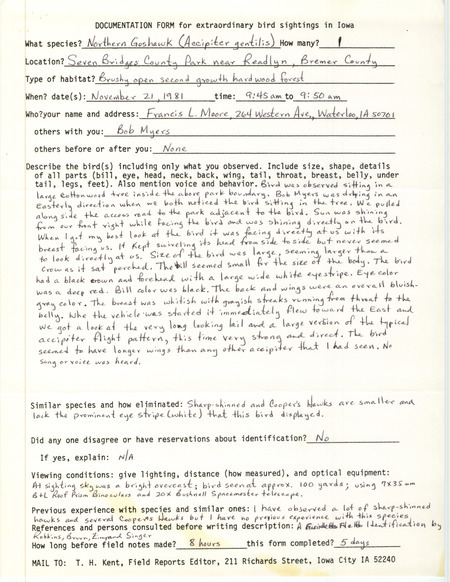 DOCUMENTATION FORM for extraordinary bird sightings in Iowa
What species? Northern Goshawk (Accipiter gentilis) How many? 1
Location? Seven Bridges County Park near Readlyn, Bremer County
Type of habitat? Brushy open second growth hardwood forest
When? date(s): November 21, 1981 time: 9:45 am to 9:50 am
Who?your name and address: Francis L. Moore, 264 Western Ave, Waterloo, IA 50701
others with you: Bob Myers
others before or after you: None
Describe the bird(s) including only what you observed. Include size, shape, details
of all parts (bill, eye, head, neck, back, wing, tail, throat, breast, belly, under
tail, legs, feet). Also mention voice and behavior. Bird was observed sitting in a
large cottonwood tree inside the above park boundary. Bob Myers was driving in an
Easterly direction when we both noticed the bird sitting in the tree. We pulled
along side the access road to the park adjacent to the bird. Sun was shining
from our front right while facing the bird and was shining directly on the bird.
When I got my best look at the bird it was facing directly at us with its
breast facing us. It Kept swireling its head from side to side but never seemed
to look directly at us. Size of the bird was large, seeming larger than a
crow as it sat perched. The bill seemed small for the size of the body. The bird
had a black crown and forehead with a large wide white eyestripe. Eye color
was a deep red. Bill color was black. The back and wings were an overall bluish-
gray color. The breast was whitish with grayish streaks running from throat to the
belly. Whe the vehicle was started it immediately flew toward the East and
we got a look at the very long looking tail and a large version of the typical
accipiter flight pattern, this time very strong and direct. The bird
seemed to have longer wings than any other accipiter that I had seen. No
song or voice was heard.
Similar species and how eliminated: Sharp-shinned and Cooper's Hawks are smaller and
lack the prominent eye stripe (white) that this bird displayed.
Did any one disagree or have reservations about identification? No
If yes, explain: N/A
Viewing conditions: give lighting, distance (how measured), and optical equipment:
At sighting sky was a bright overcast; bird seen at approx. 100 yards; using 7X35mm
B+L Roof Prism Binoculars and 20X Bushnell Spacemaster telescope.
Previous experience with species and similar ones: I have observed a lot of sharp-shinned
hawks and several Cooper's Hawks but I have no previous experience with this species.
References and persons consulted before writing description: A Field Identification by
Robbins, Bruun, Zim, and Singer
How long before field notes made? 8 hours this form completed? 5 days
MAIL TO: T. H. Kent, Field Reports Editor, 211 Richards Street, Iowa City IA 52240